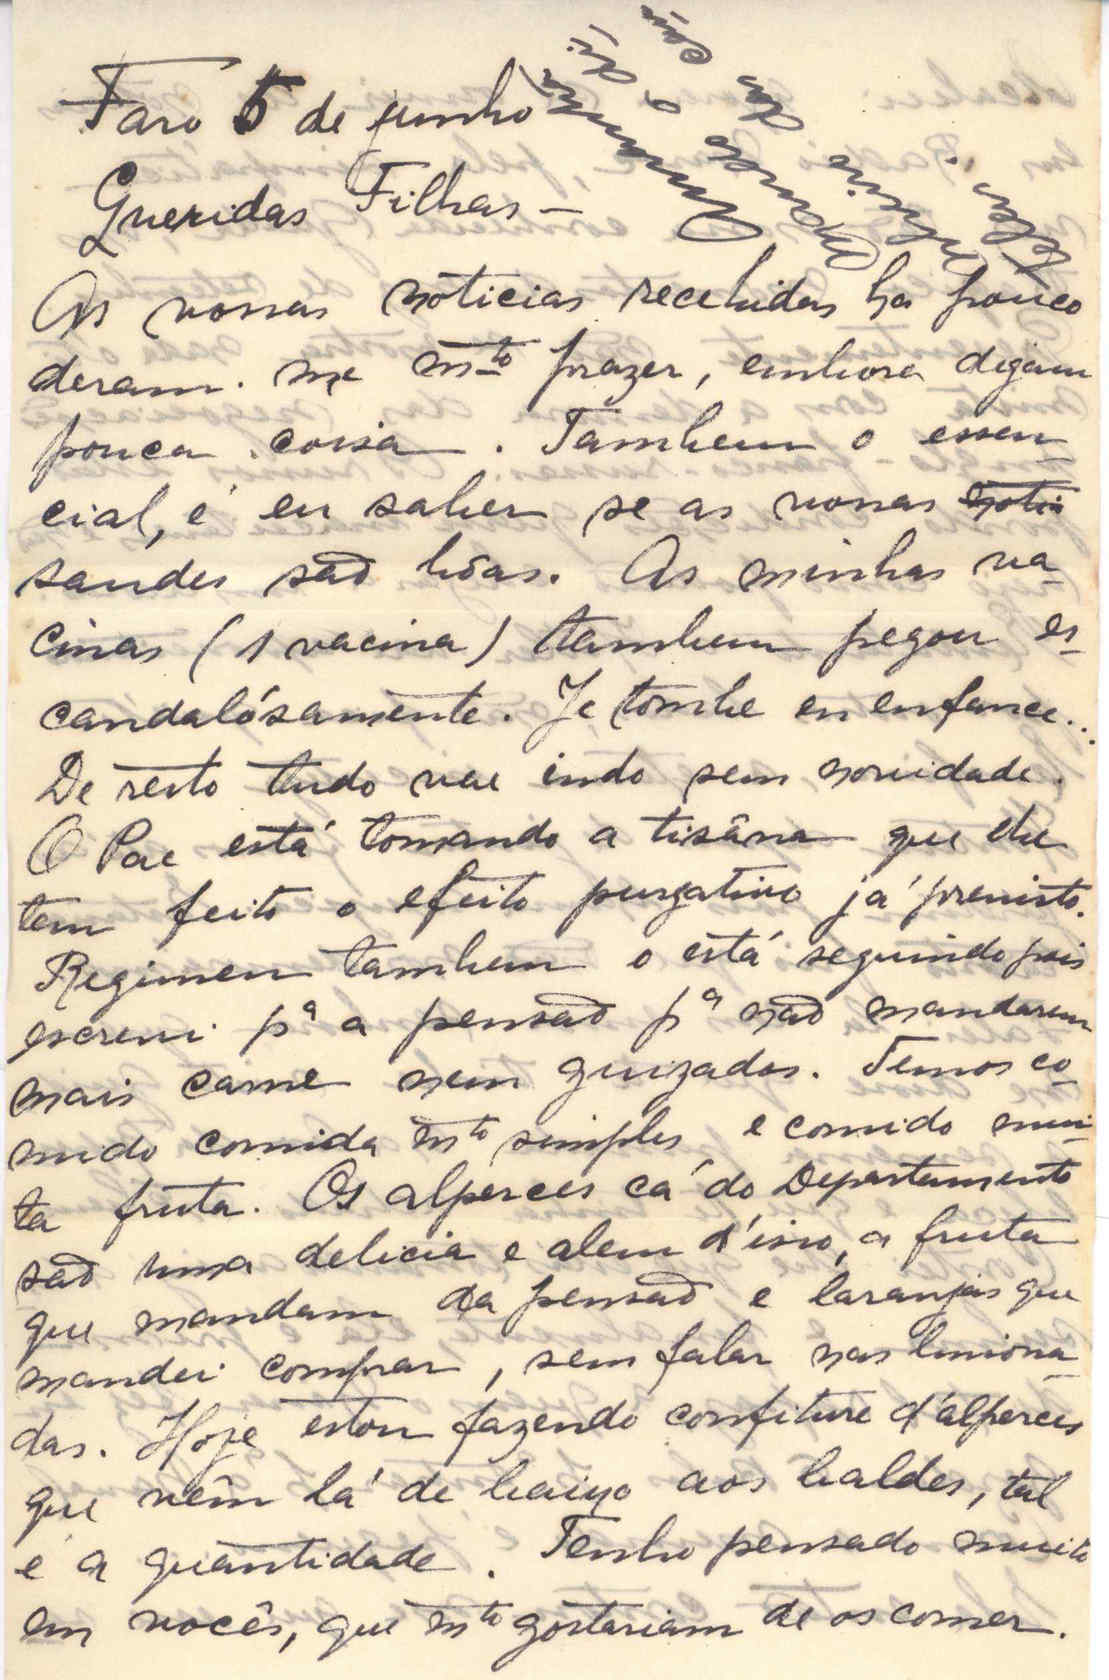 Faro 5 de junho
Queridas Filhas –
As vossas noticias recebidas ha pouco
deram-me mto prazer, embora digam
pouca coisa. Tambem o essen-
cial, é eu saber se as vossas noti
saudes são bôas. As minhas va-
cinas (1 vacina) tambem pegou es-
candalósamente. Je tombe en enfance...
De resto tudo vae indo sem novidade.
O Pae está tomando a tisâna que lhe
tem feito o efeito purgativo já previsto.
Regimen tambem o está seguindo pois
escrevi pª a pensão pª não mandarem
mais carne nem guizados. Temos co-
mido comida mto simples e comido mui-
ta fruta. Os alperces cá do Departamento
são uma delicia e alem d'isso, a fruta
que mandam da pensão e laranjas que
mandei comprar, sem falar nas limona-
das. Hoje estou fazendo confiture d'alperces
que vêm lá de baixo aos baldes, tal
é a quantidade. Tenho pensado muito
em vocês, que mto gostariam de os comer.